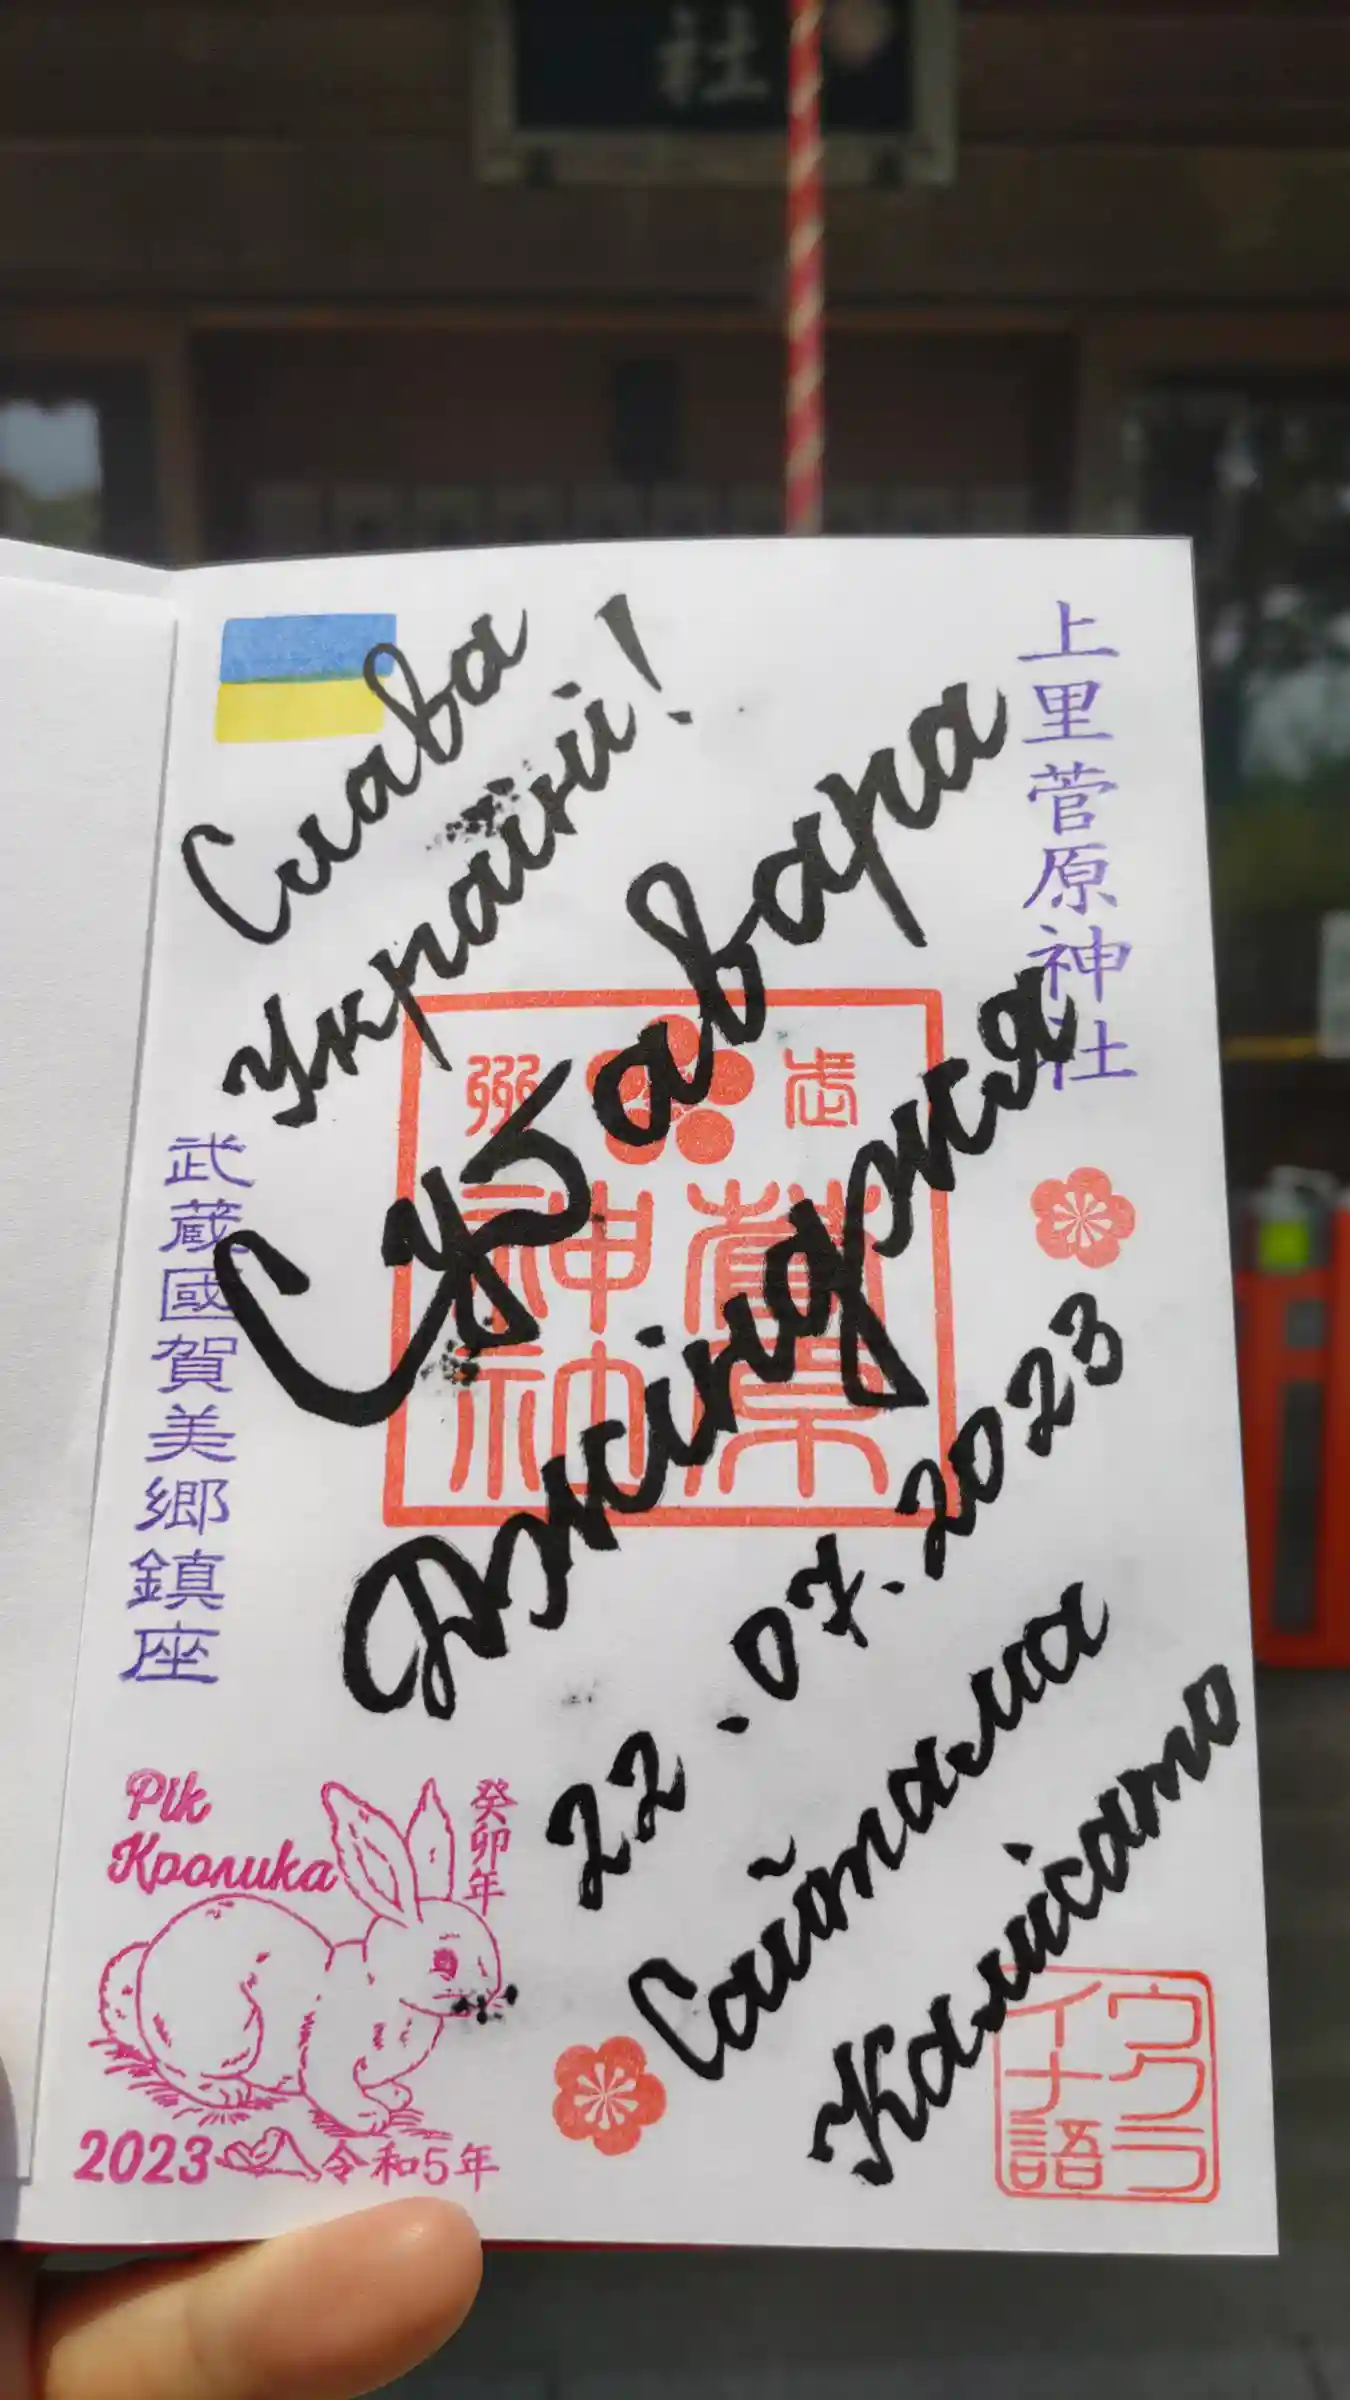 社
Слава
Україні!
上里菅原神社
Суґавара
Джінджя
武州
菅原
神社
武蔵國賀美郷鎮座
22.07.2023
Сайтама
Камісато
Рік
Кролика
癸卯年
2023 令和5年
ウクラ
イナ語